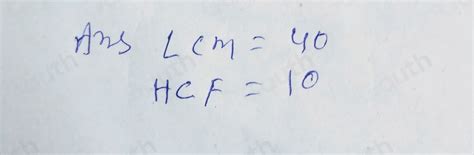 Ans LCM = 40
HCF = 10